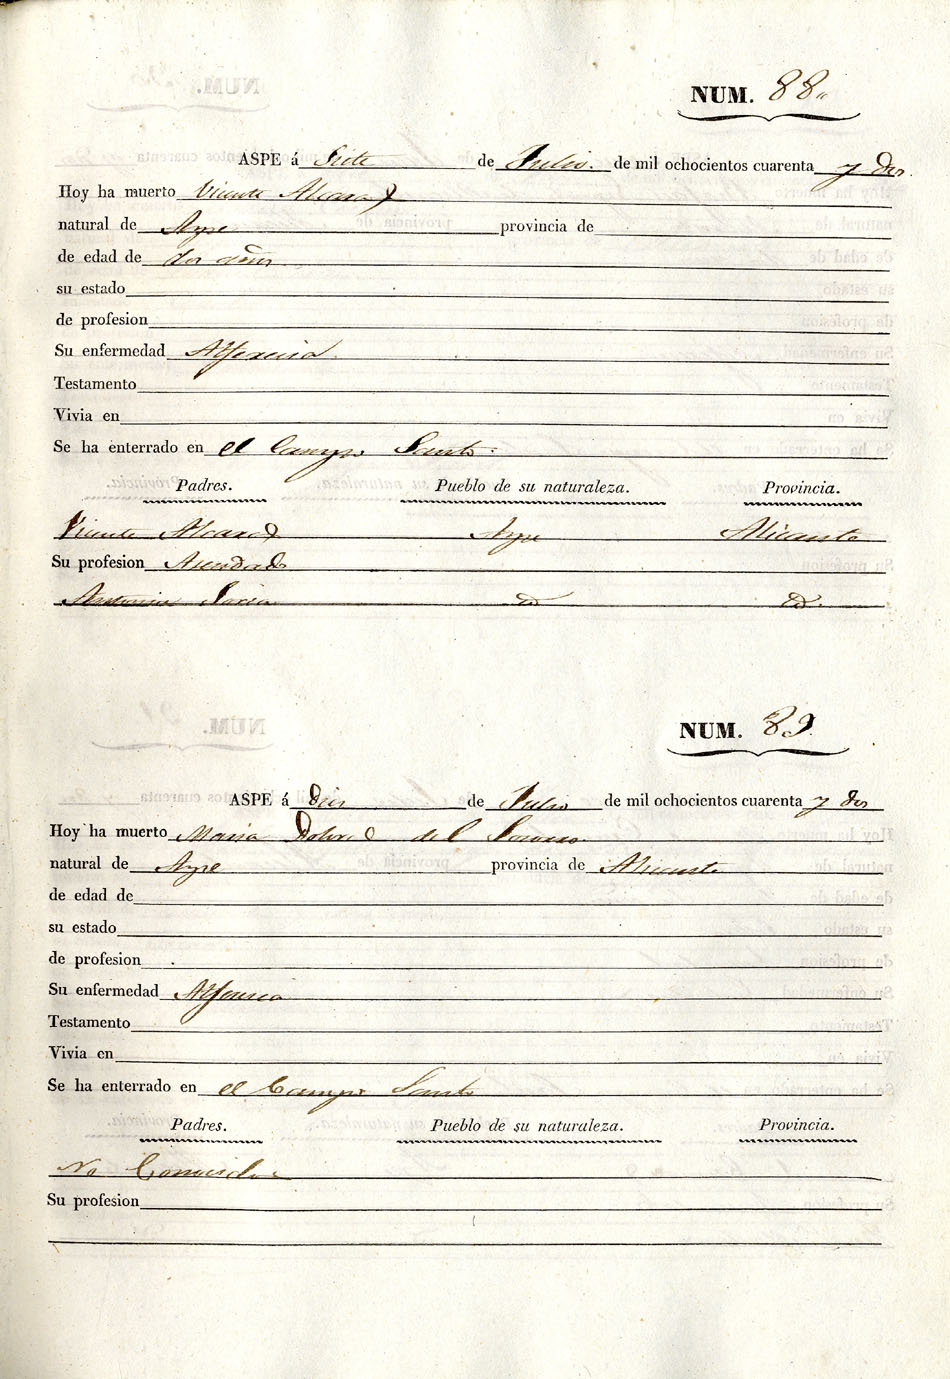 NUM. 88.
ASPE á Siete de Julio. de mil ochocientos cuarenta y dos.
Hoy ha muerto Vicente Alcaraz
natural de Aspe provincia de
de edad de dos años
su estado
de profesion
Su enfermedad Alferecia.
Testamento
Vivia en
Se ha enterrado en el Campo Santo.
Padres. Pueblo de su naturaleza. Provincia.
Vicente Alcaraz Aspe Alicante
Su profesion
Antonia id id.
NUM. 89.
ASPE á Diez de Julio de mil ochocientos cuarenta y dos
Hoy ha muerto Maria Dolores del Socorro
natural de Aspe provincia de Alicante
de edad de
su estado
de profesion
Su enfermedad Alferecia
Testamento
Vivia en
Se ha enterrado en el Campo Santo
Padres. Pueblo de su naturaleza. Provincia.
No Conocidos
Su profesion